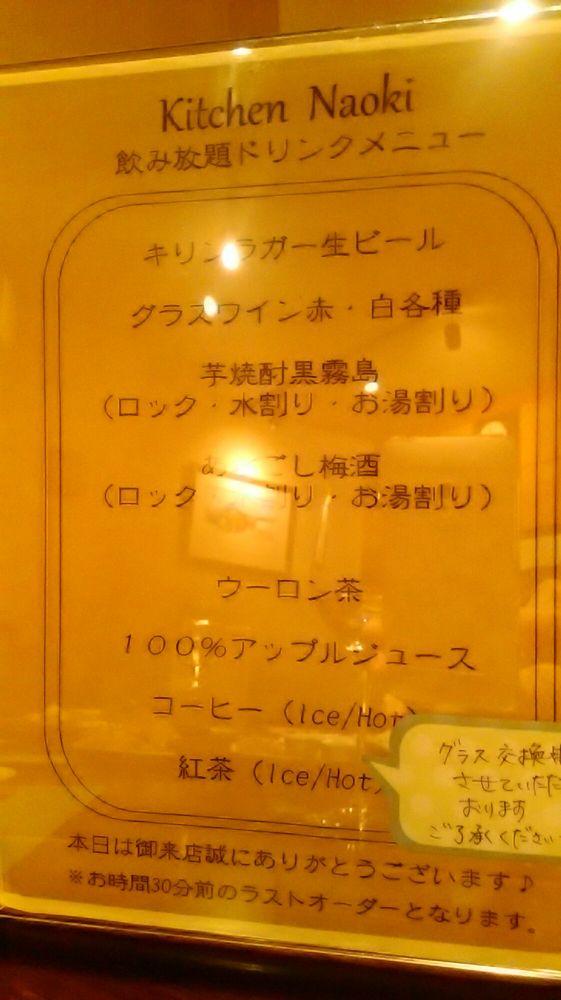 Kitchen Naoki
飲み放題ドリンクメニュー
キリンラガー生ビール
グラスワイン赤・白各種
芋焼酎黒霧島
（ロック・水割り・お湯割り）
あらごし梅酒
（ロック・水割り・お湯割り）
ウーロン茶
１００％アップルジュース
コーヒー（Ice/Hot）
紅茶（Ice/Hot）
グラス交換
させていただ
おります
ご了承ください
本日は御来店誠にありがとうございます♪
※お時間30分前のラストオーダーとなります。